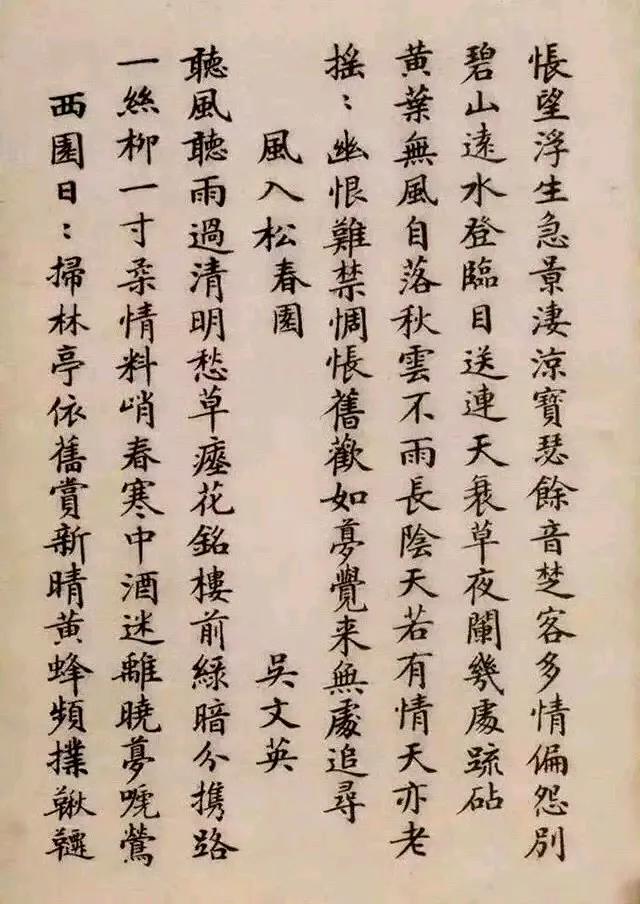 悵望浮生急景淒涼寶瑟餘音楚客多情偏怨別
碧山遠水登臨目送連天衰草夜闌幾處疏砧
黃葉無風自落秋雲不雨長陰天若有情天亦老
搖：幽恨難禁惆悵舊歡如夢覺来無處追尋
風入松春園 吳文英
聽風聽雨過清明愁草瘞花銘樓前綠暗分攜路
一絲柳一寸柔情料峭春寒中酒迷離曉夢唬鶯
西園日：掃林亭依舊賞新晴黃蜂頻撲鞦韆